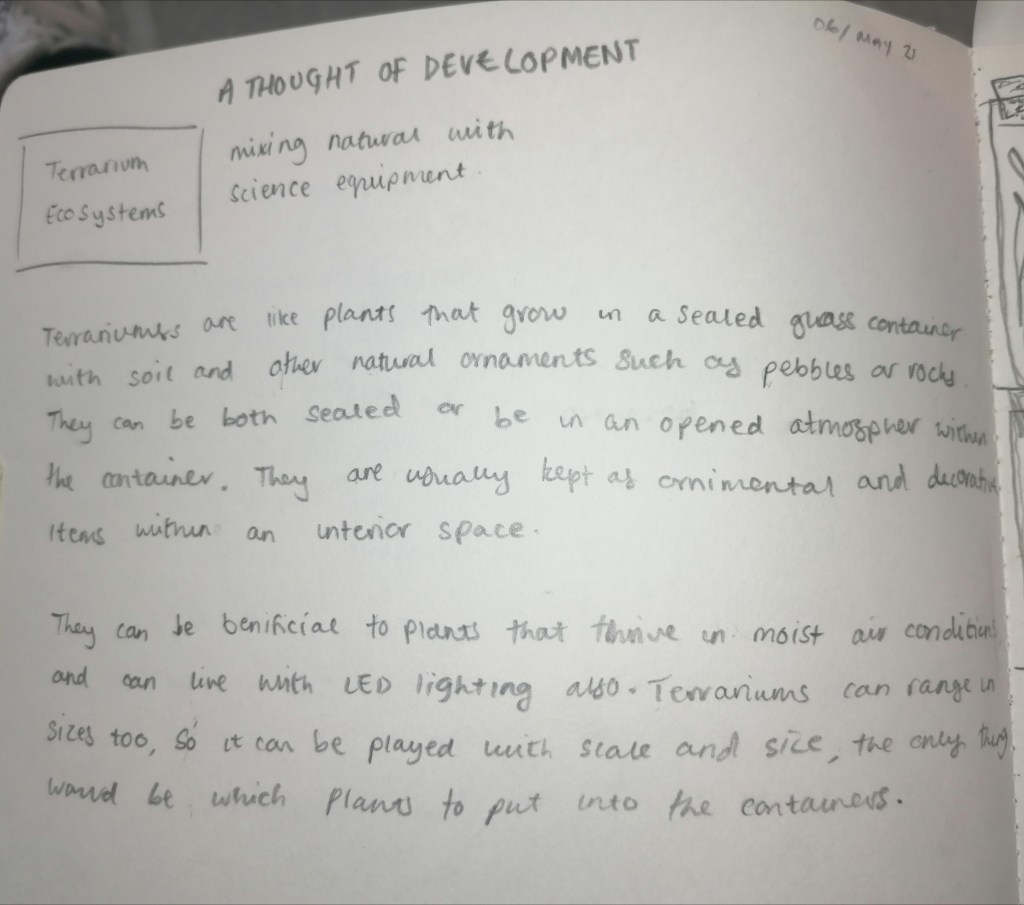 06/May 21
A THOUGHT OF DEVELOPMENT
Terrarium
Ecosystems
mixing natural with
science equipment.
Terrariums are like plants that grow in a sealed glass container
with soil and other natural ornaments such as pebbles or rocks.
They can be both sealed or be in an opened atmospher within
the container. They are usually kept as ornimental and decorative
items within an interior space.
They can be benificial to plants that thrive in moist air conditions
and can live with LED lighting also. Terrariums can range in
sizes too, so it can be played with scale and size, the only thing
would be which plants to put into the containers.